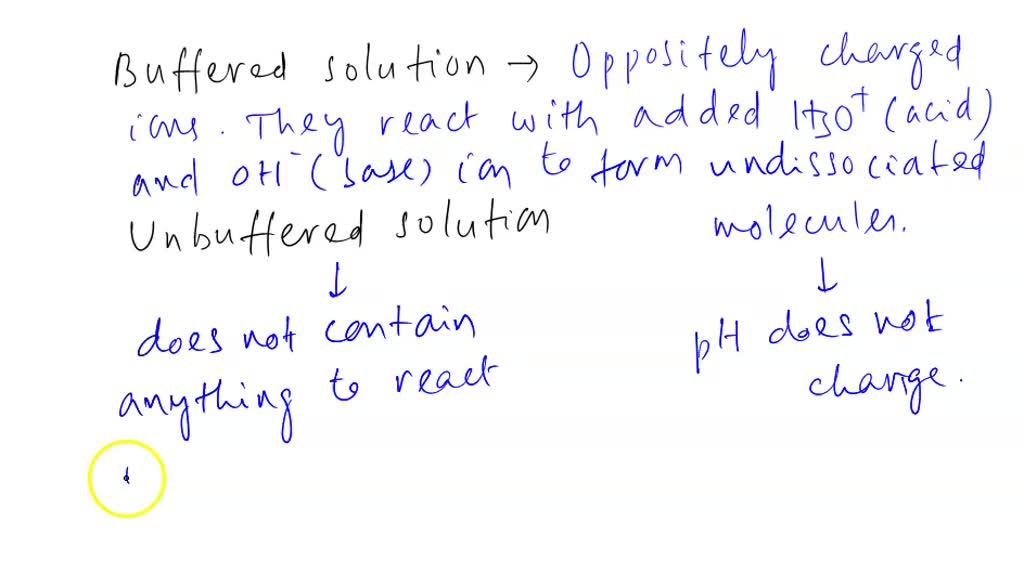 Buffered solution → Oppositely charged
ions. They react with added H3O+ (acid)
and OH- (base) ion to form undissociated
molecules.
Unbuffered solution
↓
does not contain
anything to react
↓
pH does not
change.